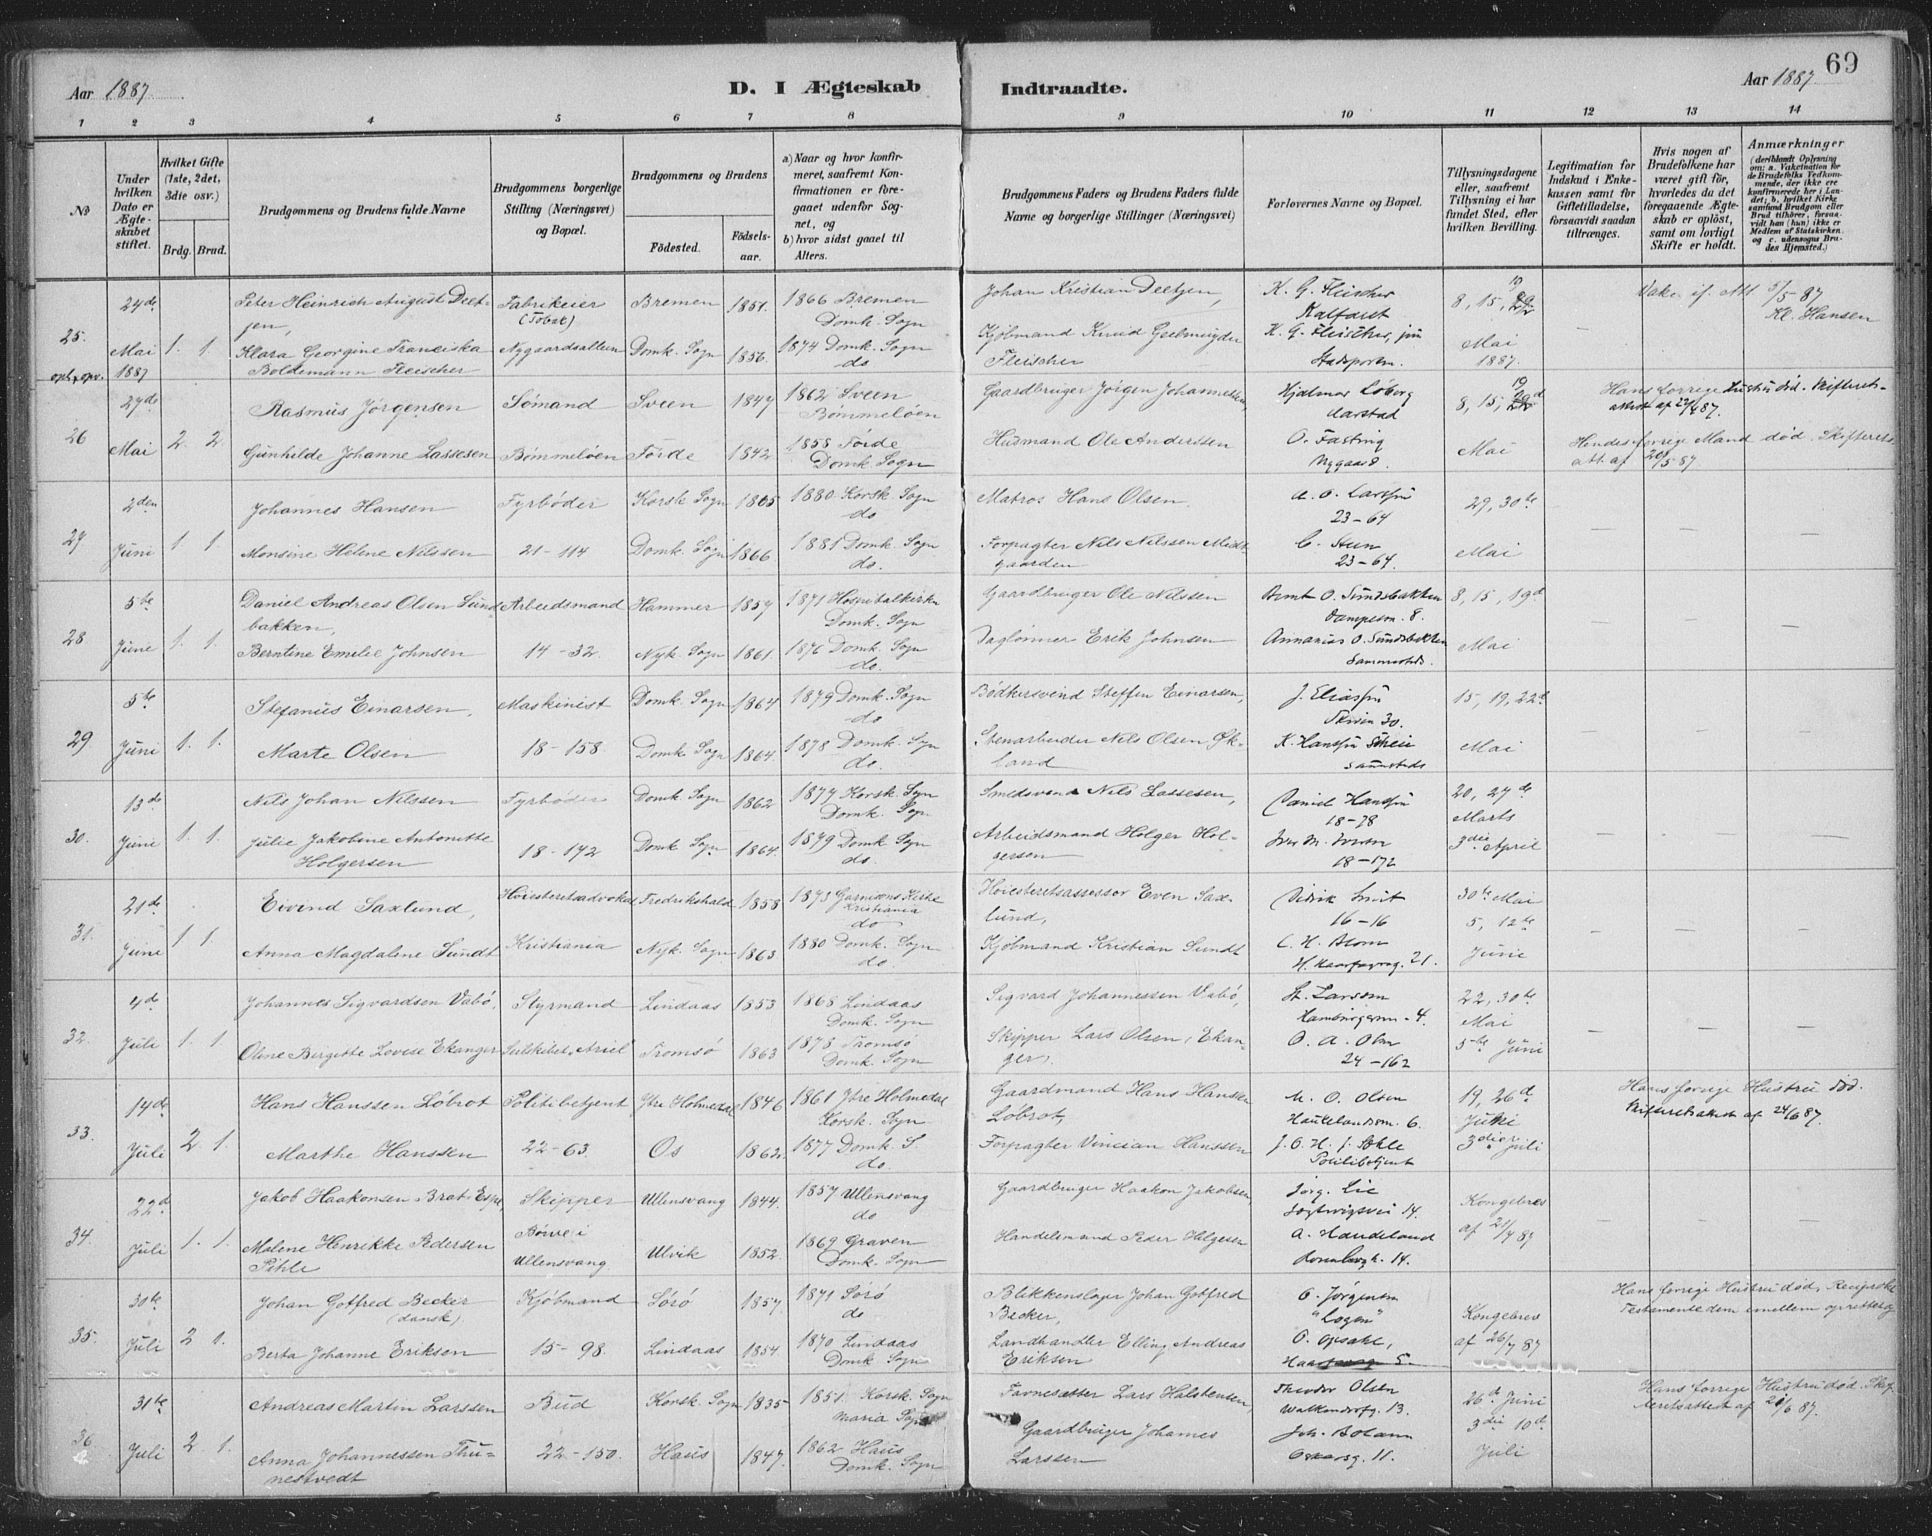 69
Aar 1887.
D. I Ægteskab
Indtraadte.
Aar 1887
1 2 3 4 5 6 7 8 9 10 11 12 13 14
№
Under hvilken Dato er Ægteskabet stiftet.
Hvilket Gifte (1ste, 2det, 3die osv.)
Brdg. Brud.
Brudgommens og Brudens fulde Navne
Brudgommens borgerlige Stilling (Næringsvei) og Bopæl.
Brudgommens og Brudens
Födested.
Födsels-aar.
a) Naar og hvor konfirmeret, saafremt Konfirmationen er foregaaet udenfor Sognet, og
b) hvor sidst gaaet til Alters.
Brudgommens Faders og Brudens Faders fulde Navne og borgerlige Stillinger (Næringsvei)
Forlovernes Navne og Bopæl.
Tillysningsdagene eller, saafremt Tillysning ei har fundet Sted, efter hvilken Bevilling.
Legitimation for Indskud i Enkekassen samt for Giftetilladelse, forsaavidt saadan tiltrænges.
Hvis nogen af Brudefolkene har været gift för, hvorledes da det foregaaende Ægteskab er oplöst, samt om lovligt Skifte er holdt.
Anmærkninger
(deriblandt Oplysning om: a. Vakcination for de Brudefolks Vedkommende, der ikke ere konfirmerede her i Landet; b. hvilket Kirkesamfund Brudgom eller Brud tilhörer, forsaavidt han (hun) ikke er Medlem af Statskirken, og c. udensogns Brudes Hjemsted.)
25. 24de Mai 1887 1. 1.
Peter Heinrich August Deetjen, Fabrikeier (Tobak) Bremen 1851. 1866 Bremen Domk. Sogn
Johan Kristian Deetjen, K. G. Fleischer Kalfaret 8, 15, 19 Mai 1887.
Klara Georgine Franciska Boldemann Fleischer Nygaardsalleen Domk. Sogn 1856. 1874 Domk. Sogn do
Kjøbmand Knud Fleischer K. G. Fleischer, jun Stadsporten.
Kl. Hansen
26 27de Mai 2. 2.
Rasmus Jörgensen Sömand Sveen 1847 1862 Sveen Bömmelöen
Gaardbruger Jörgen Johannessen Hjalmar Löberg Aarstad 8, 15, 19 Mai
Hans forrige Hustru död. Skifteretsattest af 22/4 87.
Gunhilde Johanne Lassesen Bömmelöen Förde 1842 1858 Förde Domk. Sogn
Husmand Ole Andersen O. Fasting Nygaard 8.
Hendes forrige Mand död Skifterets att. af 20/5 87.
27 2den Juni 1. 1.
Johannes Hansen Fyrböder Korsk. Sogn 1865 1880 Korsk. Sogn do
Matros Hans Olsen. A. O. Larsen 23-64 29, 30te Mai
Monsine Helene Nilssen 21-114 Domk. Sogn 1866. 1881 Domk. Sogn do.
Forpagter Nils Nilssen Midtgaarden C. Steen 23-64.
28 5te Juni 1. 1.
Daniel Andreas Olsen Sundbakken, Arbeidsmand Hammer 1857 1871 Hospitalkirken Domk. Sogn
Gaardbruger Ole Nilssen Bernt O. Sundsbakken Dampsson. 8. 8, 15, 19d Mai
Berntine Emilie Johnsen 14-32. Nyk. Sogn 1861. 1876 Domk. Sogn do.
Daglönner Erik Johnsen Annanias O. Sundsbakken Sammesteds.
29 5te Juni 1. 1.
Stefanus Einarsen, Maskinist Domk. Sogn 1864 1879 Domk. Sogn do
Bödkersvend Steffen Einarsen, J. Eliassen Skiven 30. 15, 19, 22de Mai
Marte Olsen 18-158 Domk. Sogn 1864. 1878 Domk. Sogn do.
Stenarbeider Nils Olsen Ökland K. Hanssen Skeie Sammesteds
30. 13de Juni 1. 1.
Nils Johan Nilssen Fyrböder Domk. Sogn 1862 1877 Korsk. Sogn Domk. Sogn
Smedsvend Nils Lassesen, Daniel Hanssen 18-78 20, 27de Marts 3die April
Julie Jakobine Antonette Holgersen 18-172 Domk. Sogn 1864. 1879 Domk. Sogn do.
Arbeidsmand Holger Holgersen Iver M. Iversen 18-172
31. 21de Juni 1 1.
Eivind Saxlund, Höiesteretsadvokat Fredrikshald 1858 1873 Garnisons Kirke Kristiania do
Höiesteretsassessor Even Saxlund, Didrik Smit 16-16 30te Mai 5, 12te Juni
Anna Magdalene Sundt Kristiania Nyk. Sogn 1863 1880 Domk. Sogn do.
Kjöbmand Kristian Sundt C. H. Blom H. Haarfagresg. 21.
32. 4de Juli 1. 1.
Johannes Sigvardsen Vabö, Styrmand Lindaas 1853 1868 Lindaas Domk. Sogn
Sigvard Johannessen Vabö, St. Larsen Hamburgersm. 4. 22, 30te Mai 5te Juni
Oline Birgitte Lovise Ekanger Seilskibet Ariel Tromsö 1863 1878 Tromsö Domk. Sogn
Skipper Lars Olsen Ekanger. O. A. Olsen 24-162
33. 14de Juli 2 1.
Hans Hanssen Löbrot Politibetjent Ytre Holmedal 1846 1861 Ytre Holmedal Korsk. Sogn
Gaardmand Hans Hanssen Löbrot, M. O. Olsen Haukelandsm. 6. 19, 26de Juni 3die Juli
Hans forrige Hustru död. Skifteretsattest af 24/6 87.
Marthe Hanssen 22-63. Os 1862. 1877 Domk. S. do.
Forpagter Vincian Hanssen J. O. H. J. Sohle Politibetjent
34. 22de Juli 1. 1.
Jakob Haakonsen Brat-Espe Skipper Ullensvang 1844. 1857 Ullensvang do
Gaardbruger Haakon Jakobsen, Jörg. Lie 14. Kongebrev af 21/7 87
Malene Henrikke Pedersen Pihle Börve i Ullensvang Ulvik 1852. 1869 Graven Domk. Sogn
Handelsmand Peder Helgesen A. Haukeland Rosenbergk. 14.
35. 30te Juli 2 1.
Johan Gotfred Becker (dansk) Kjöbmand Sörö 1857 1871 Sörö do
Blikkenslager Johan Gotfred Becker, O. Jörgensen "Logen" Kongebrev af 26/7 87
Hans forrige Hustru död, Reciprokt Testamente dem imellem oprettet
Berta Johanne Eriksen 15-98. Lindaas 1854. 1870 Lindaas Domk. Sogn
Landhandler Elling Andreas Eriksen O. Opsahl, 5.
36. 31te Juli 2 1.
Andreas Martin Larssen Bud Korsk. Sogn 1835 1851 Korsk. Sogn Maria Sogn
Favnesætter Lars Halstensen Theodor Olsen Walkendorfg. 13. 26de Juni 3die 10de Juli
Hans forrige Hustru död. Skifteretsattest af 20/6 87.
Anna Johannessen Thunestvedt 22-150. Haus 1847. 1862 Haus Domk. Sogn
Gaardbruger Johannes Larssen Joh. Bolann Oskarsg. 11.